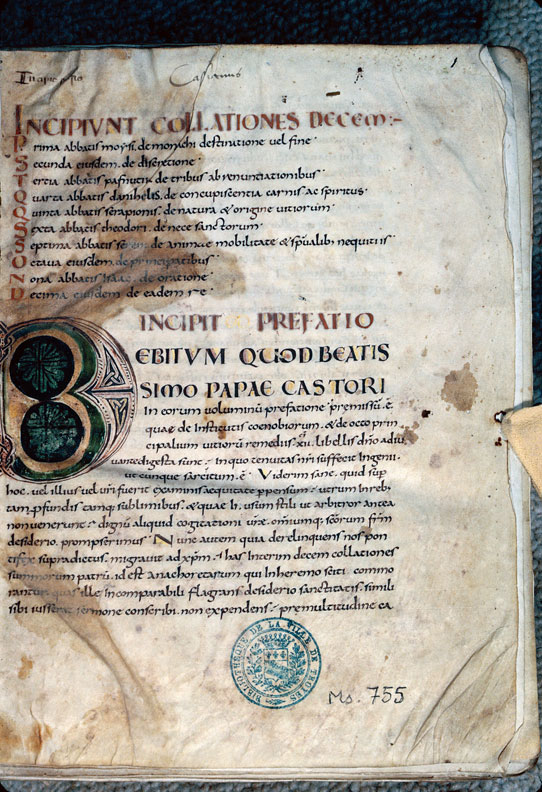 Cassianus
1
INCIPIUNT COLLATIONES DECEM:-
Prima abbatis moysi. de monachi destinatione uel fine.
Secunda eiusdem. de discretione.
Tertia abbatis pafnutii. de tribus abrenuntiationibus.
Quarta abbatis danihelis. de concupiscentia carnis ac spiritus.
Quinta abbatis serapionis. de natura & origine uitiorum.
Sexta abbatis theodori. de nece sanctorum.
Septima abbatis sereni. de animae mobilitate & sp̄ualib; nequitiis.
Octaua eiusdem. de principatibus.
Nona abbatis isaac. de oratione.
Decima eiusdem de eadem
INCIPIT PREFATIO
DEBITVM QUOD BEATIS
SIMO PAPAE CASTORI
In eorum uoluminū prefatione premissū. ē.
quae de Institutis coenobiorum. & de octo prin
cipalium uitiorū remediis. xii. libellis dn̄o adiu
uante digesta sunt; in quo tenuitas nr̄i suffecit Ingenii.
utcunque sarcitum. ē. Viderim sane. quid sup
hoc. uel illius uel ur̄i fuerit examinis aequitate ppensum; utrum In reb;
tam pfundis tamq; sublimibus. & quae In usum stili ut arbitror antea
non uenerunt; dignū aliquid cogitationi ur̄ae. omniumq; sc̄orum fr̄m
desiderio. prompserimus. Nunc autem quia derelinquens nos pon
tifex supradictus. migrauit ad xp̄m; has Interim decem collationes
summorum patrū. id est anachoretarum qui In heremo sciti commo
rantur quas ille Incomparabili flagrans desiderio sanctitatis. simili
sibi iusserat sermone conscribi. non expendens; pre multitudine ca
BIBLIOTHEQUE DE LA VILLE DE TROYES
Ms. 755